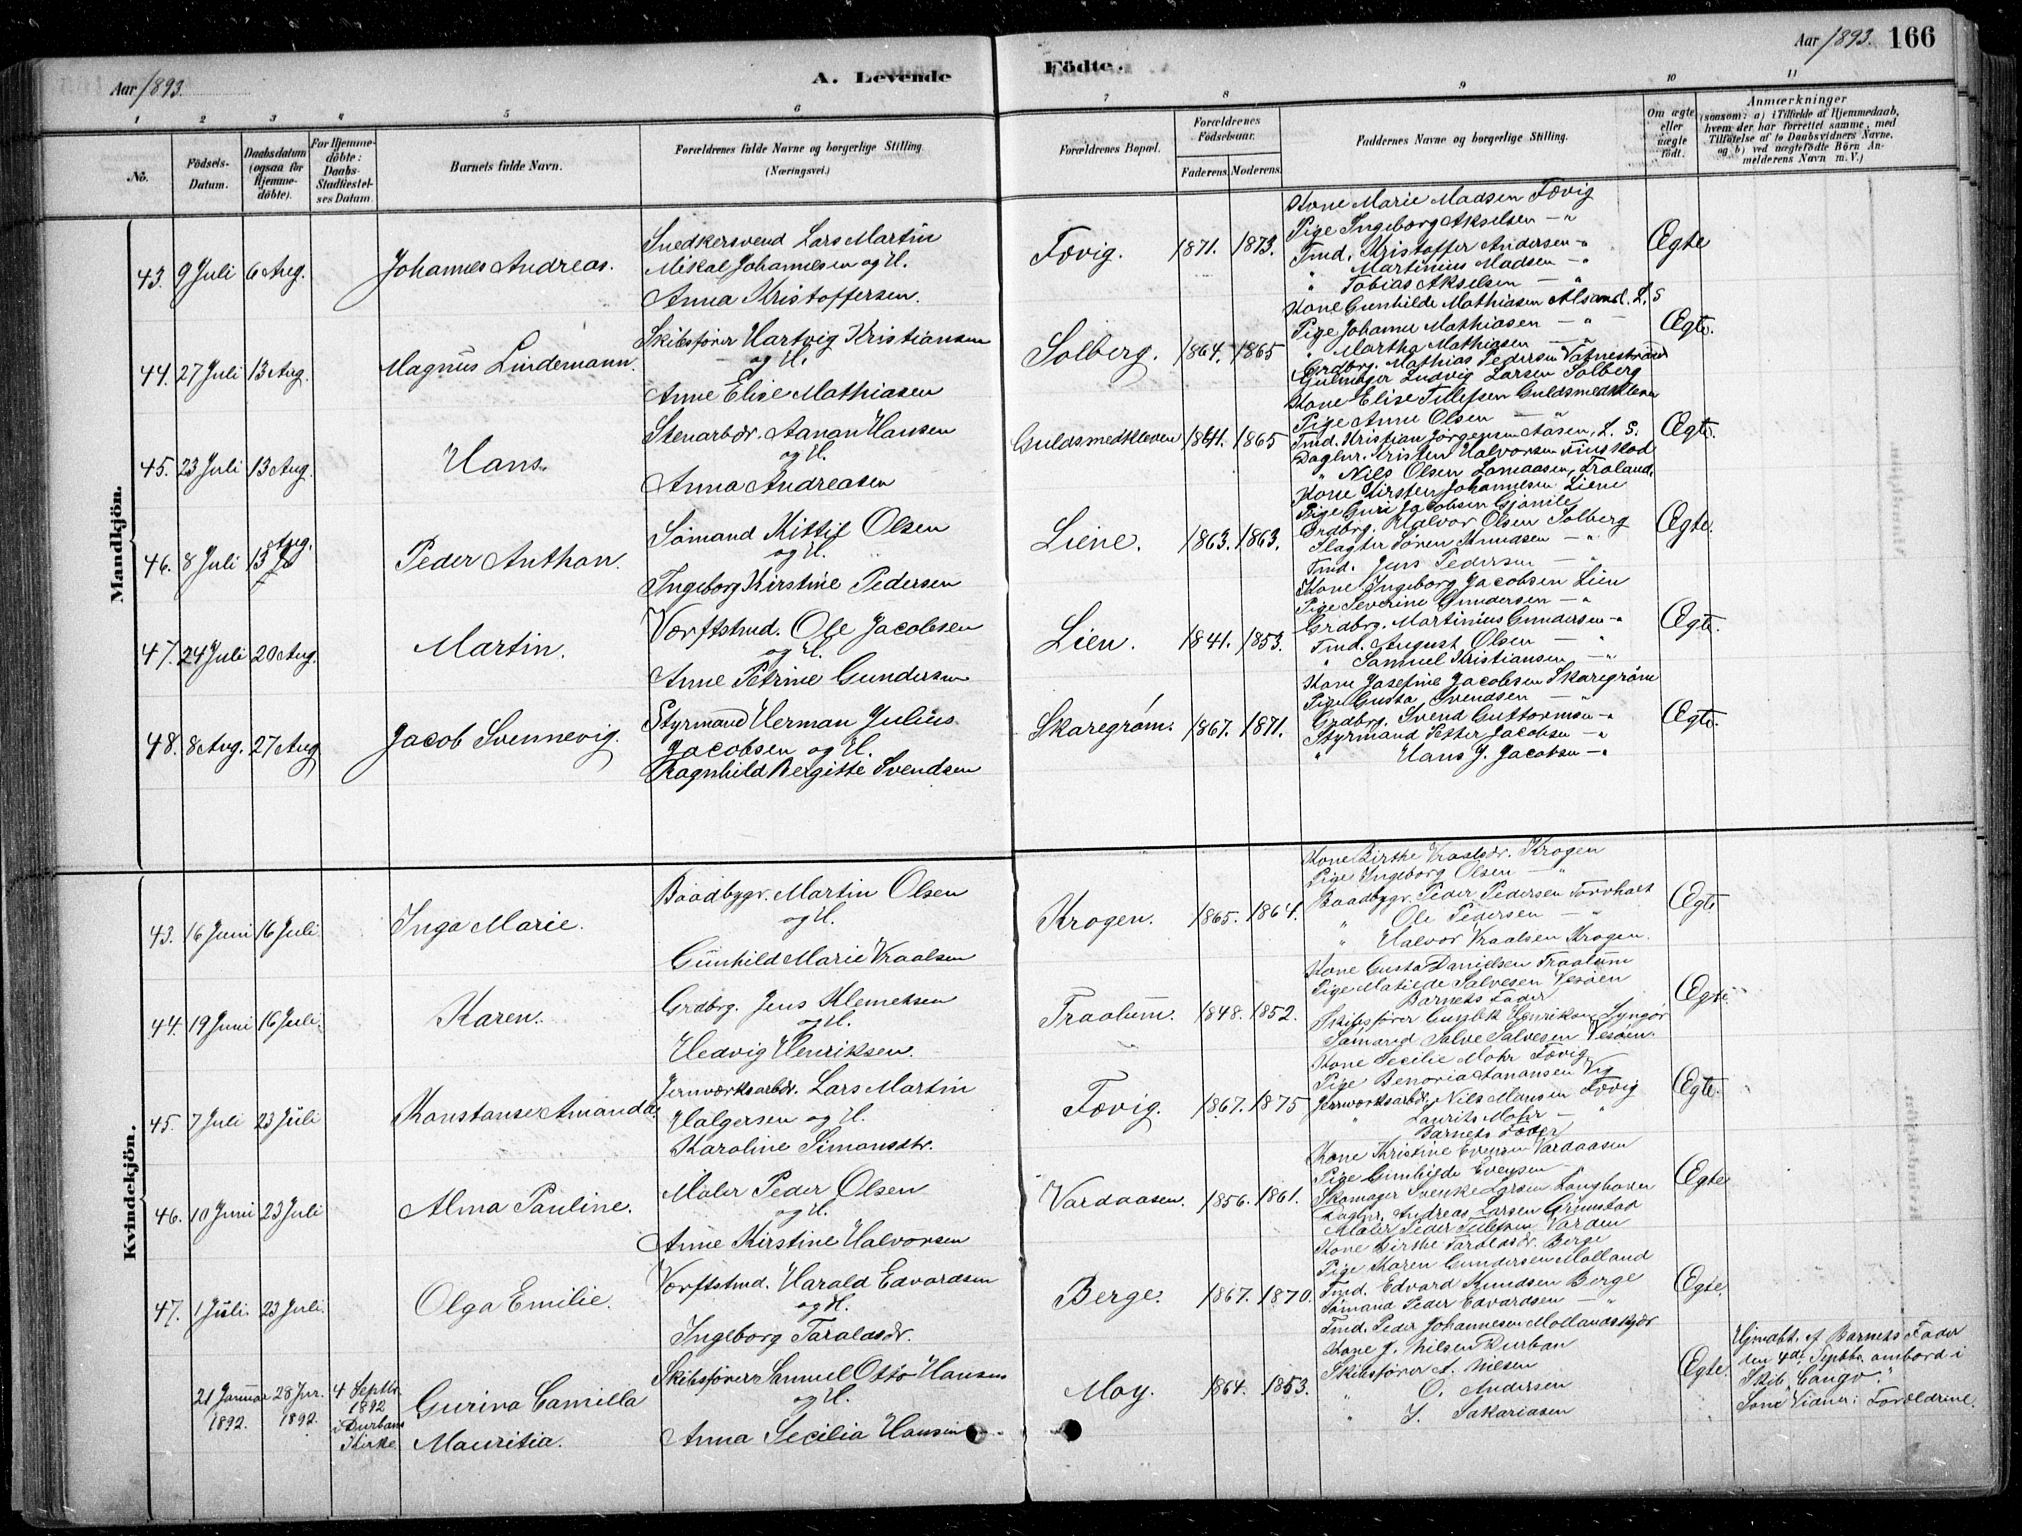 Aar 1893.
A. Levende
Födte.
Aar 1893. 166
1 2 3 4 5 6 7 8 9 10 11
No.
Födsels-Datum.
Daabsdatum (ogsaa for Hjemmedöbte).
For Hjemmedöbte: Daabs-Stadfæstelses Datum.
Barnets fulde Navn.
Forældrenes fulde Navne og borgerlige Stilling. (Næringsvei.)
Forældrenes Bopæl.
Forældrenes Födselsaar.
Faderens. Moderens.
Faddernes Navne og borgerlige Stilling.
Om ægte eller uægte födt.
Anmærkninger
(saasom: a) i Tilfælde af Hjemmedaab, hvem der har forrettet samme, med Tilföielse af to Daabsvidners Navne, og b) ved uægtefödte Börn Anmelderens Navn m. V.)
Mandkjön.
43. 9 Juli 6 Aug. Johannes Andreas.
Snedkersvend Lars Martin
Mikal Johannesen og H.
Anna Kristoffersen.
Fævig. 1871. 1873.
Kone Marie Madsen Fævig
Pige Ingeborg Akselsen — "
Tmd. Kristoffer Andersen — "
" Martinius Madsen — "
" Tobias Akselsen — "
Ægte
44. 27 Juli 13 Aug. Magnus Lindemann.
Skibsfører Hartvig Kristiansen
og H.
Anne Elise Mathiasen
Solberg. 1864. 1865
Kone Gunhilde Mathiasen
Pige Johanne Mathiasen — "
" Martha Mathiasen — "
Grdbrg. Mathias Pedersen Vatnestrand
Gulmager Ludvig Larsen Solberg
Ægte.
45. 23 Juli 13 Aug. Hans.
Stenarbdr. Aanon Hansen
og H.
Anna Andreasen
Guldsmedkleven 1841. 1865
Kone Elise Tellefsen Guldsmedkleven
Pige Anne Olsen — "
Tmd. Kristian Jörgensen Aasen, L. S.
Daglnr. Kristen Halvorsen
" Nils Olsen
Ægte.
46. 8 Juli 13 Aug. Peder Anthon.
Sömand Kittil Olsen
og H.
Ingeborg Kirstine Pedersen
Liene. 1863. 1863.
Kone Kirsten Johannesen Liene
Pige Guri Jacobsen
Grdbrg. Halvor Olsen Solberg
Slagter Sören Knudsen — "
Tmd. Jens Pedersen — "
Ægte.
47. 24 Juli 20 Aug. Martin.
Værftstmd. Ole Jacobsen
og H.
Anne Petrine Gundersen
Lien. 1841. 1853.
Kone Ingeborg Jacobsen Lien
Pige Severine Gundersen — "
Grdbrg. Martinius Gundersen — "
Tmd. August Olsen — "
" Samuel Kristiansen — "
Ægte.
48. 8 Aug. 27 Aug Jacob Svennevig.
Styrmand Herman Julius
Jacobsen og H.
Ragnhild Bergitte Svendsen
Skaregrøm. 1867. 1871.
Kone Josefine Jacobsen Skaregrøm
Pige Gusta Svendsen — "
Grdbrg. Svend Guttormsen — "
Styrmand Petter Jacobsen — "
" Hans J. Jacobsen — "
Ægte.
Kvindekjön.
43. 16 Juni 16 Juli Inga Marie.
Baadbygr. Martin Olsen
og H.
Gunhild Marie Vraalsen
Krogen. 1865. 1864.
Kone Birthe Vraalsdr. Krogen
Pige Ingeborg Olsen — "
Baadbygr. Peder Pedersen
" Ole Pedersen — "
" Halvor Vraalsen Krogen.
Ægte
44. 19 Juni 16 Juli. Karen.
Grdbrg. Jens Klemetsen
og H.
Hedvig Henriksen.
Traalum. 1848. 1852.
Kone Gusta Danielsen Traalum
Pige Matilde Salvesen Vesøen
Barnets Fader
Skibsfører Henriksen Lyngør
Sömand Salve Salvesen Vesøen.
Ægte.
45. 7 Juli 23 Juli Konstanse Amanda
Jernværksarbdr. Lars Martin
Holgersen og H.
Karoline Simonsdtr.
Fævig. 1867. 1875
Kone Secilie Mohr Fævig
Pige Benoria Aanonsen Vig
Jernværksarbdr. Nils Hansen Fævig
" Laurits Mohr — "
Barnets Fader
Ægte.
46. 10 Juni 23 Juli Alma Pauline.
Maler Peder Olsen
og H.
Anne Kirstine Halvorsen
Vardaasen. 1856. 1861.
Kone Kristine Evensen Vardaasen
Pige Gunhilde Evensen —
Skomager Svenke Larsen
Daglnr. Andreas Larsen Grimstad
Maler Peder Tellefsen Varden
Ægte
47. 1 Juli 23 Juli. Olga Emilie.
Værftstmd. Harald Edvardsen
og H.
Ingeborg Taraldsdr.
Berge. 1867. 1870
Kone Birthe Taraldsdr. Berge
Pige Karen Gundersen Molland
Tmd. Edvard Knudsen Berge
Sömand Peder Edvardsen — "
Tmd. Peder Johannesen
Ægte.
21 Januar 1892. 28 Jnr. 1892. 4 Septbr. 1892 i Durbans Kirke
Gurina Camilla
Mauritia.
Skibsfører Samuel Otto Hansen
og H.
Anna Secilia Hansen
Moy. 1864. 1853.
Kone J. Nilsen Durban
Skibsfører A. Nilsen
" O. Andersen
" J. Sakariasen
Ægte.
Hjmdbt. af Barnets Fader
den 4de Septbr. ombord i
Skib Cango.
Som Vidner: Forældrene.